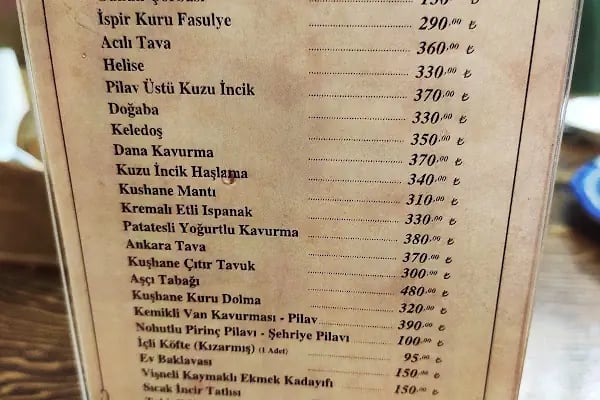 İspir Kuru Fasulye 290,00 ₺
Acılı Tava 360,00 ₺
Helise 330,00 ₺
Pilav Üstü Kuzu İncik 370,00 ₺
Doğaba 330,00 ₺
Keledoş 350,00 ₺
Dana Kavurma 370,00 ₺
Kuzu İncik Haşlama 340,00 ₺
Kushane Mantı 310,00 ₺
Kremalı Etli Ispanak 330,00 ₺
Patatesli Yoğurtlu Kavurma 380,00 ₺
Ankara Tava 370,00 ₺
Kuşhane Çıtır Tavuk 300,00 ₺
Aşçı Tabağı 480,00 ₺
Kuşhane Kuru Dolma 320,00 ₺
Kemikli Van Kavurması - Pilav 390,00 ₺
Nohutlu Pirinç Pilavı - Şehriye Pilavı 100,00 ₺
İçli Köfte (Kızarmış) (1 Adet) 95,00 ₺
Ev Baklavası 150,00 ₺
Vişneli Kaymaklı Ekmek Kadayıfı 150,00 ₺
Sıcak İncir Tatlısı